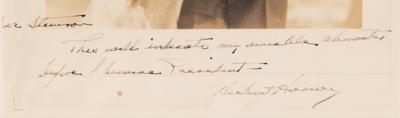 Stimson
This will indicate my amiable character
before I became President —
Herbert Hoover